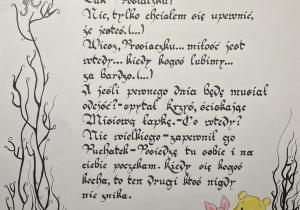 Tak Prosiaczku?
Nic, tylko chciałem się upewnić,
że jesteś.(...)
Wiesz, Prosiaczku... miłość jest
wtedy... kiedy kogoś lubimy...
za bardzo.(...)
A jeśli pewnego dnia będę musiał
odejść?-spytał Krzyś, ściskając
Misiową łapkę.-Co wtedy?
Nic wielkiego-zapewnił go
Puchatek-Posiedzę tu sobie i na
ciebie poczekam. Kiedy się kogoś
kocha, to ten drugi ktoś nigdy
nie znika.